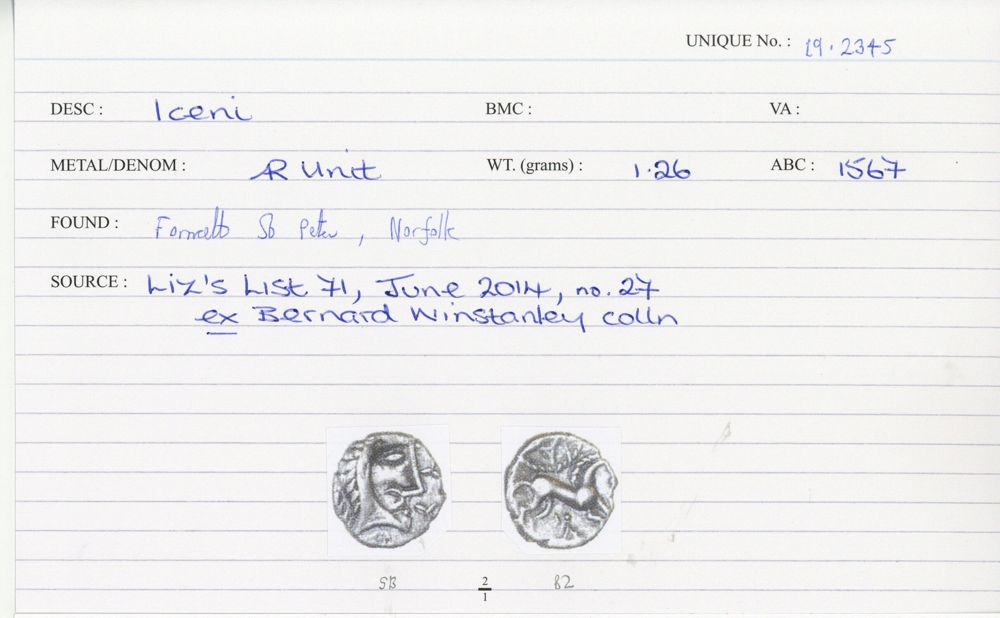 UNIQUE No. : 19.2345
DESC : Iceni BMC : VA :
METAL/DENOM : AR Unit WT. (grams) : 1.26 ABC : 1567
FOUND : Forncett St Peter, Norfolk
SOURCE : Liz's List 71, June 2014, no. 27
ex Bernard Winstanley colln
2
1